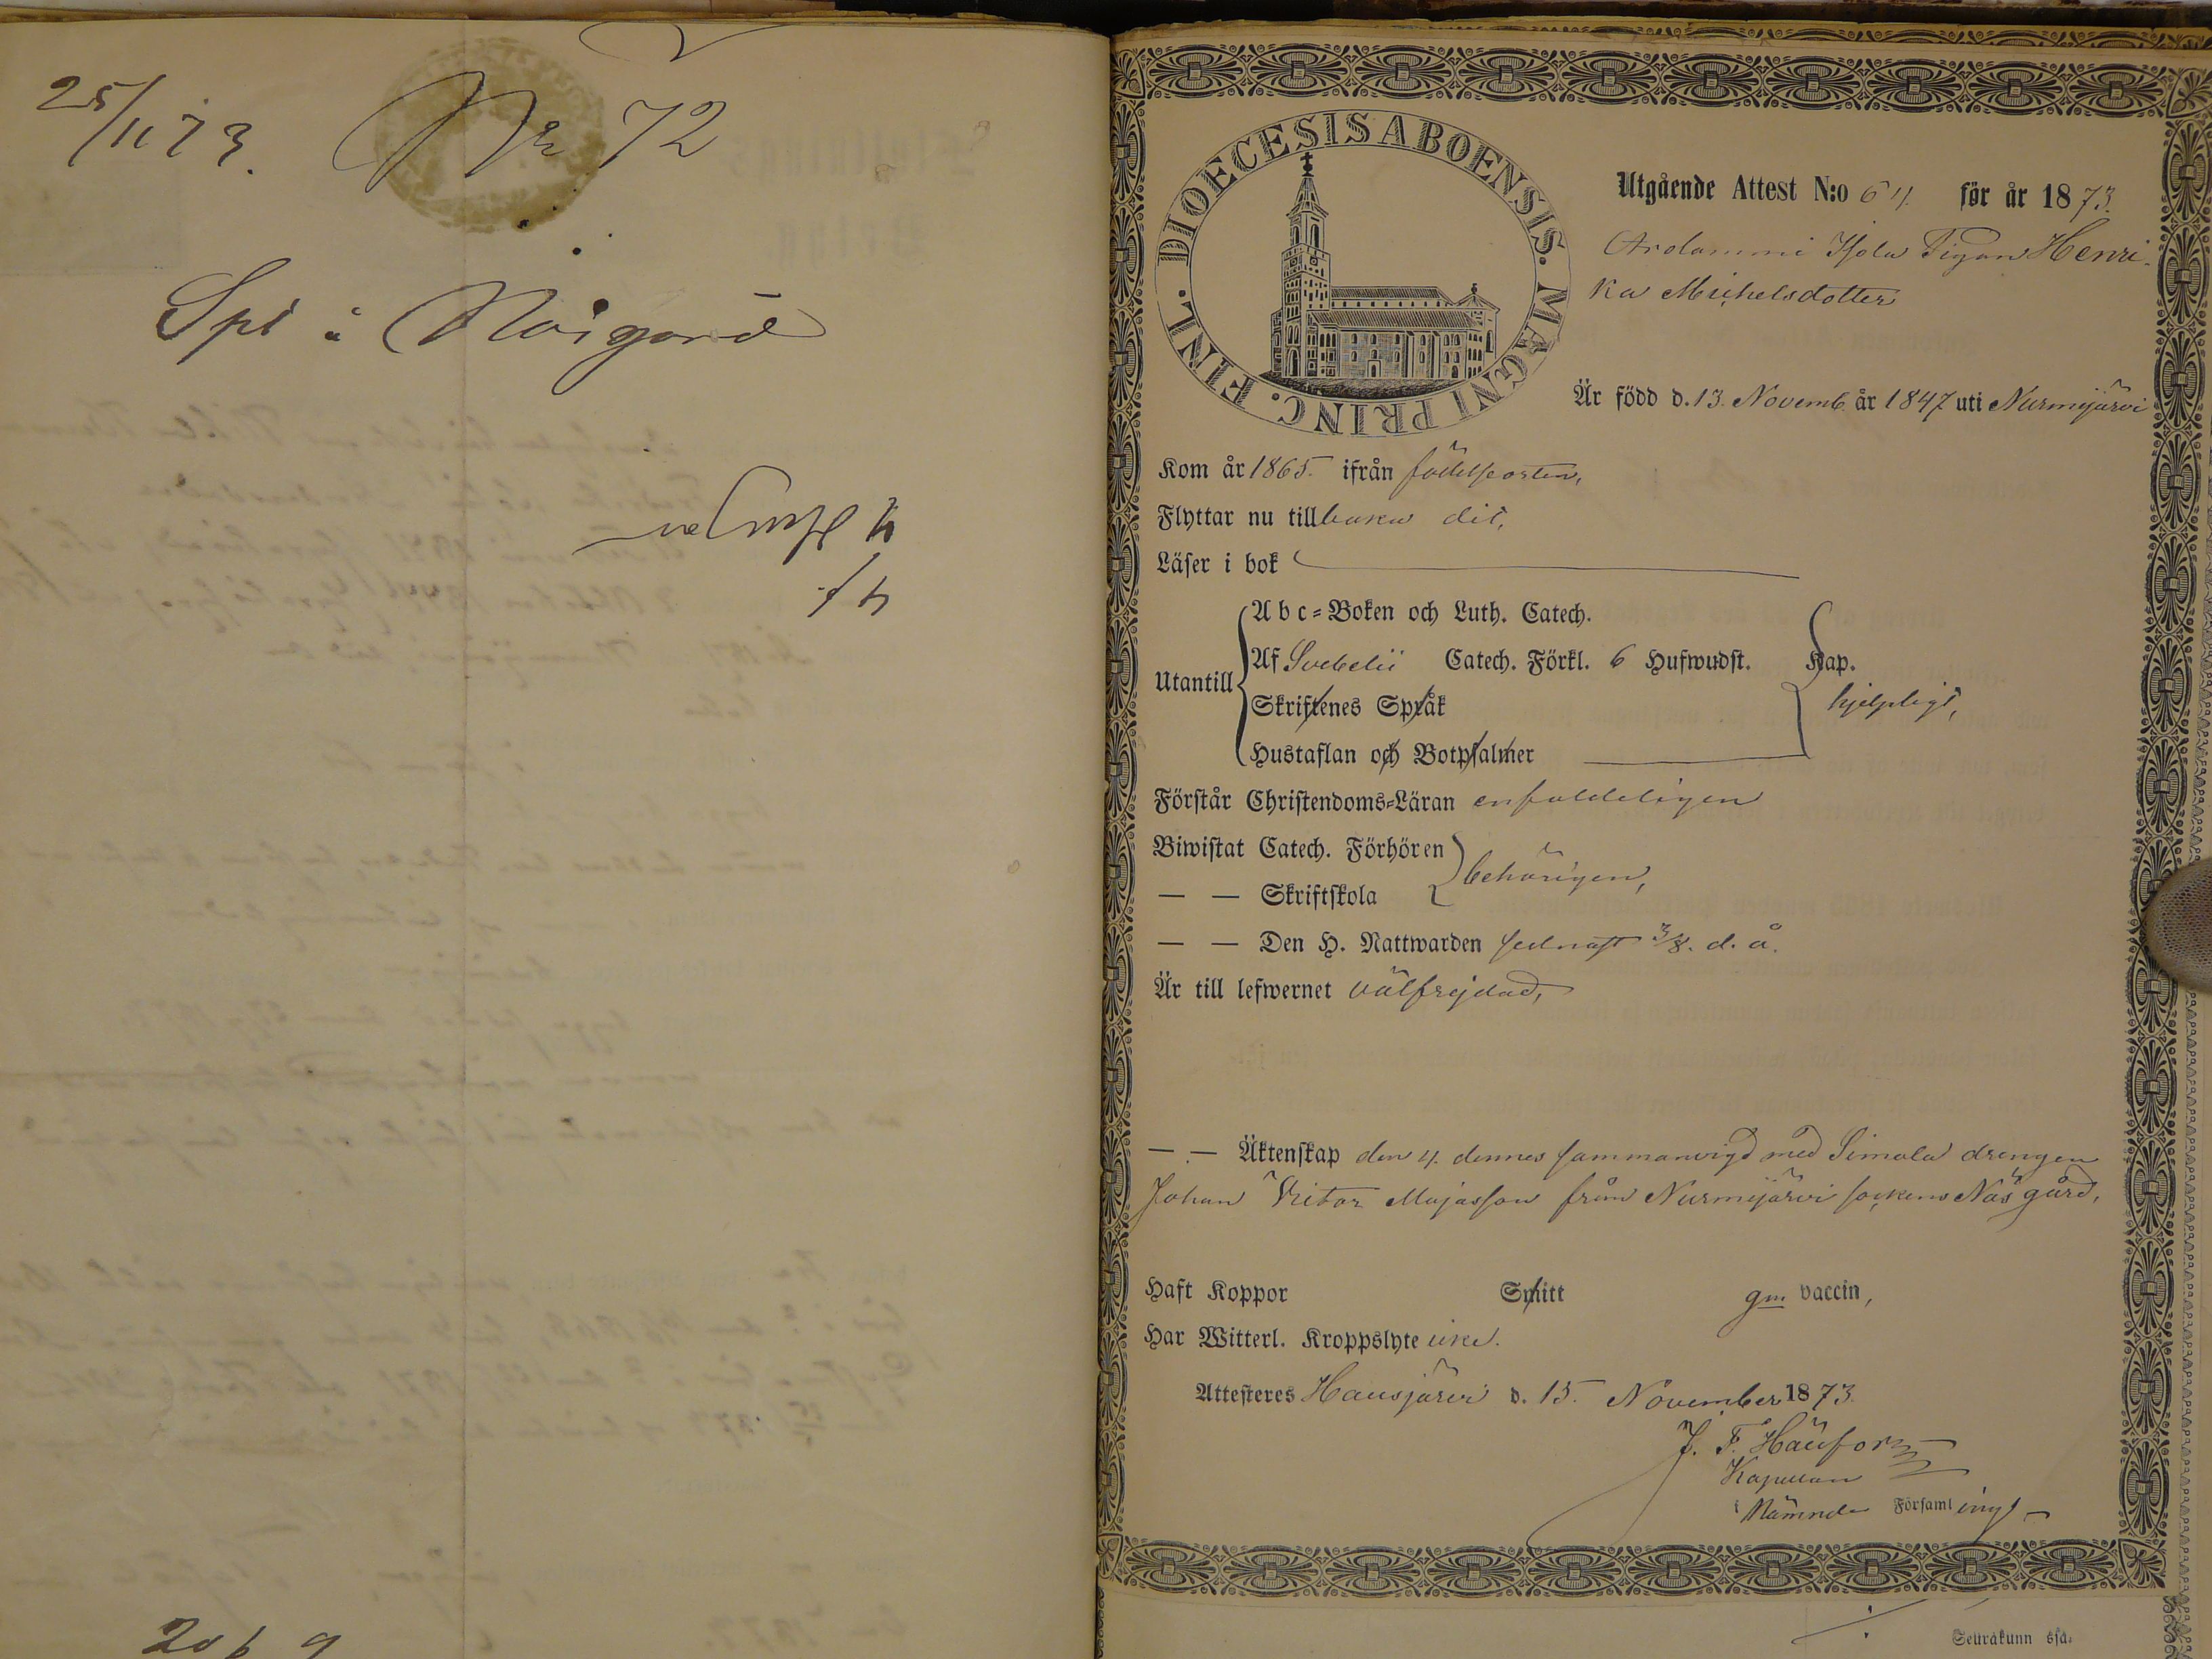 25/11 73. No 72
Spl å Näsgård
206 9
FINL. DIOECESIS ABOENSIS. MAGNI PRINC.
Utgående Attest N:o 64. för år 1873.
Isola Pigan Henri-
ka Michelsdotter
Är född d. 13. Novemb. år 1847 uti Nurmijärvi
Kom år 1865. ifrån födelseorten,
Flyttar nu tillbaka dit,
Läser i bok
Abc-Boken och Luth. Catech.
Utantill Af Svebelii Catech. Förkl. 6 Hufwudst. Kap.
Skriftenes Språk hjelpligt,
Hustaflan och Botpsalmer
Förstår Christendoms-Läran enfaldeligen
Biwistat Catech. Förhören behörigen,
— — Skriftskola
— — Den H. Nattwarden sednast 3/8. d. å.
Är till lefwernet välfrejdad,
— — Äktenskap den 4. dennes sammanvigd med Simola drengen
Johan Victor Majasson från Nurmijärvi sockens Näs gård,
Haft Koppor Smitt gm vaccin,
Har Witterl. Kroppslyte icke.
Attesteres Hausjärvi d. 15. November 1873.
J. F. Hänfors
Kapellan
i Nämnde Församling
Seurakunnassa.